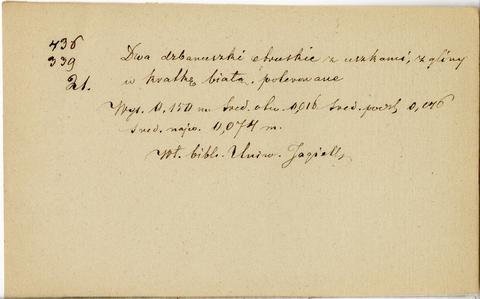 436
339
21.
Dwa dzbanuszki etruskie z uszkami, z gliny
w kratkę białą, polerowane
Wys. 0,150 m. Śred. otw. 0,016 Śred. podst. 0,046
Śred. najw. 0,074 m.
Wł. bibl. Uniw. Jagiell.